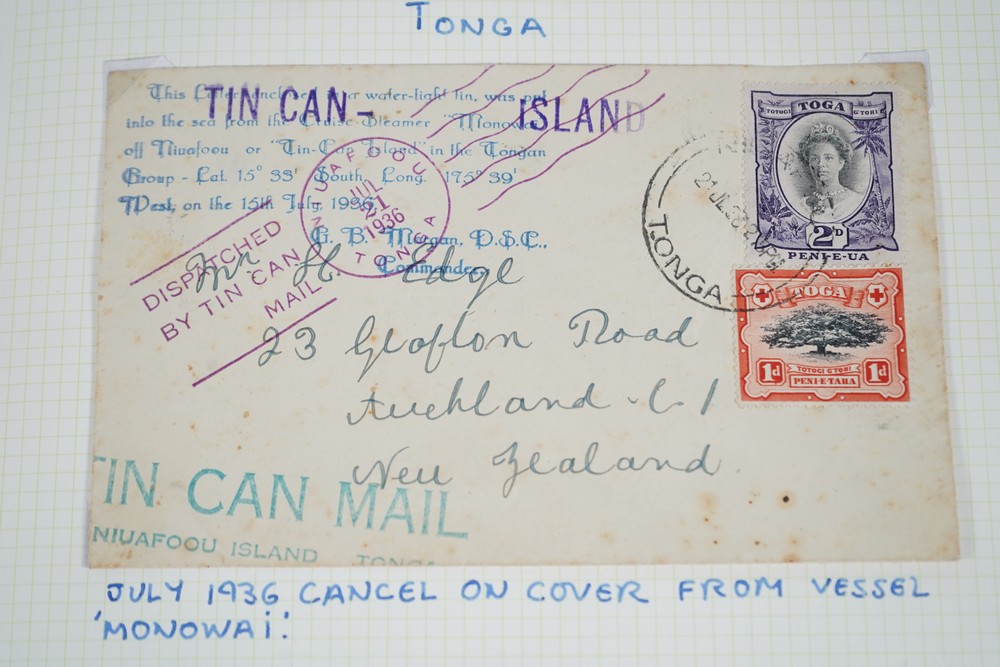 TONGA
TIN CAN- ISLAND
This Letter, enclosed in a water-tight tin, was put
into the sea from the Cruise Steamer "Monowai"
off Niuafoou or "Tin-Can Island" in the Tongan
Group - Lat. 15° 33' South, Long. 175° 39'
West, on the 15th July, 1936.
G. B. Morgan, D.S.C.,
Commander.
NIUAFOOU
JUL
21
1936
TONGA
DISPATCHED
BY TIN CAN
MAIL
Mr H. Edge
23 Grafton Road
Auckland. C1
New Zealand.
TOGA
TOTOGI G'TOHI
2D
PENI-E-UA
TONGA
TOGA
TOTOGI G'TOHI
1d 1d
PENI-E-TAHA
TIN CAN MAIL
NIUAFOOU ISLAND TONGA
JULY 1936 CANCEL ON COVER FROM VESSEL
'MONOWAI'.